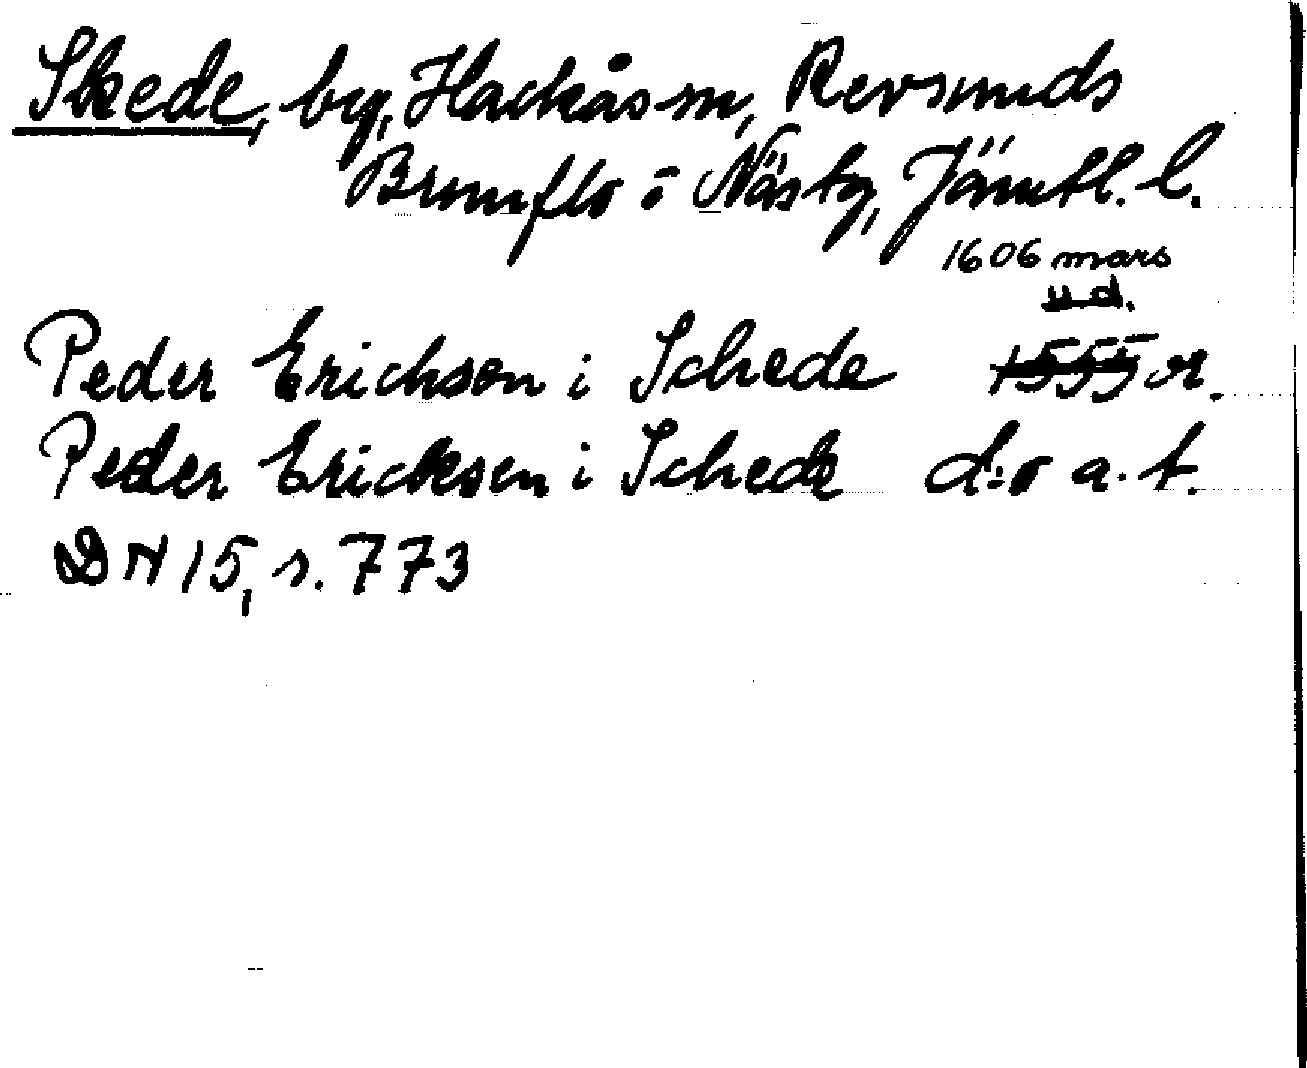 Skede, by, Hackås sn, Revsunds
Brunflo o Näs tg, Jämtl. l.
1606 mars
u d.
Peder Erichson i Schede 1555 or.
Peder Ericksen i Schede d:o a. t.
DN 15, s. 773